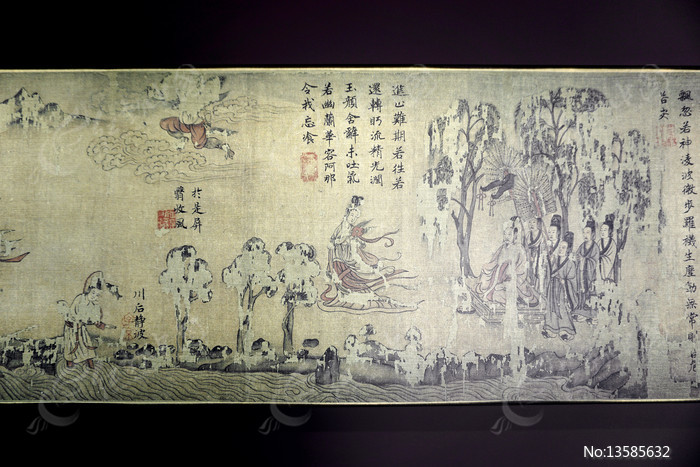 飄忽若神凌波微步羅襪生塵動無常則若危
若安
進止難期若往若
還轉眄流精光潤
玉顏含辭未吐氣
若幽蘭華容阿那
令我忘飡
於是屏
翳收風
川后靜波
No:13585632